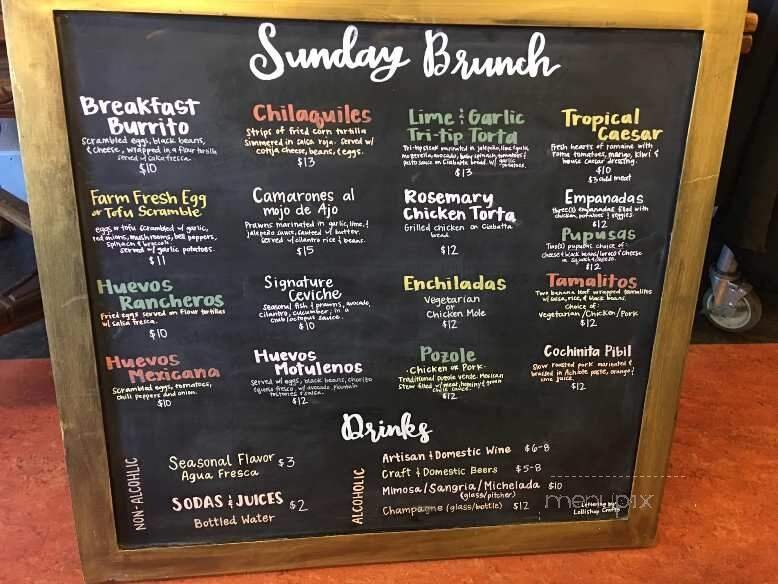 Sunday Brunch
Breakfast
Burrito
Scrambled eggs, black beans,
& cheese, wrapped in a flour tortilla
served w/ salsa fresca.
$10
Chilaquiles
Strips of fried corn tortilla
Simmered in salsa roja. Served w/
cotija cheese, beans, & eggs.
$13
Lime & Garlic
Tri-tip Torta
Tri-tip steak marinated in jalapeño, lime & garlic
mozzarella, avocado, baby spinach, tomatoes &
pesto sauce on Ciabatta bread. w/ garlic
potatoes.
$13
Tropical
Caesar
Fresh hearts of romaine with
roma tomatoes, mango, kiwi &
house caesar dressing.
$10
$3 add meat
Farm Fresh Egg
or Tofu Scramble
eggs or tofu scrambled w/ garlic,
red onions, mushrooms, bell peppers,
spinach & broccoli
served w/ garlic potatoes.
$11
Camarones al
mojo de Ajo
Prawns marinated in garlic, lime, &
jalapeño sauce, sautéed w/ butter.
Served w/ cilantro rice & beans.
$15
Rosemary
Chicken Torta
Grilled chicken on Ciabatta
bread.
$12
Empanadas
three(3) empanadas filled with
chicken, potatoes & veggies
$12
Pupusas
Two(2) pupusas choice of:
cheese & black beans/loroco & cheese
or squash & cheese.
$12
Huevos
Rancheros
Fried eggs served on flour tortillas
w/ salsa fresca.
$10
Signature
Ceviche
Seasonal fish & prawns, avocado,
cilantro, cucumber, in a
crab/octopus sauce.
$10
Enchiladas
Vegetarian
or
Chicken Mole
$12
Tamalitos
Two banana leaf wrapped tamalitos
w/ salsa, rice, & black beans.
Choice of:
Vegetarian/Chicken/Pork
$12
Huevos
Mexicana
Scrambled eggs, tomatoes,
chili peppers and onion.
$10
Huevos
Motulenos
Served w/ eggs, black beans, chorizo
queso fresco, w/ avocado, plantain
tostones & salsa.
$12
Pozole
·Chicken or Pork·
Traditional pozole verde. Mexican
Stew filled w/ meat, hominy & green
chile sauce.
$12
Cochinita Pibil
Slow roasted pork marinated &
braised in Achiote paste, orange &
lime juice.
$12
Drinks
NON-ALCOHLIC
Seasonal Flavor $3
Agua Fresca
SODAS & JUICES $2
Bottled Water
ALCOHOLIC
Artisan & Domestic Wine $6-8
Craft & Domestic Beers $5-8
Mimosa/Sangria/Michelada $10
(glass/pitcher)
Champagne (glass/bottle) $12
Lettering by:
Lollishop Crafts
menupix